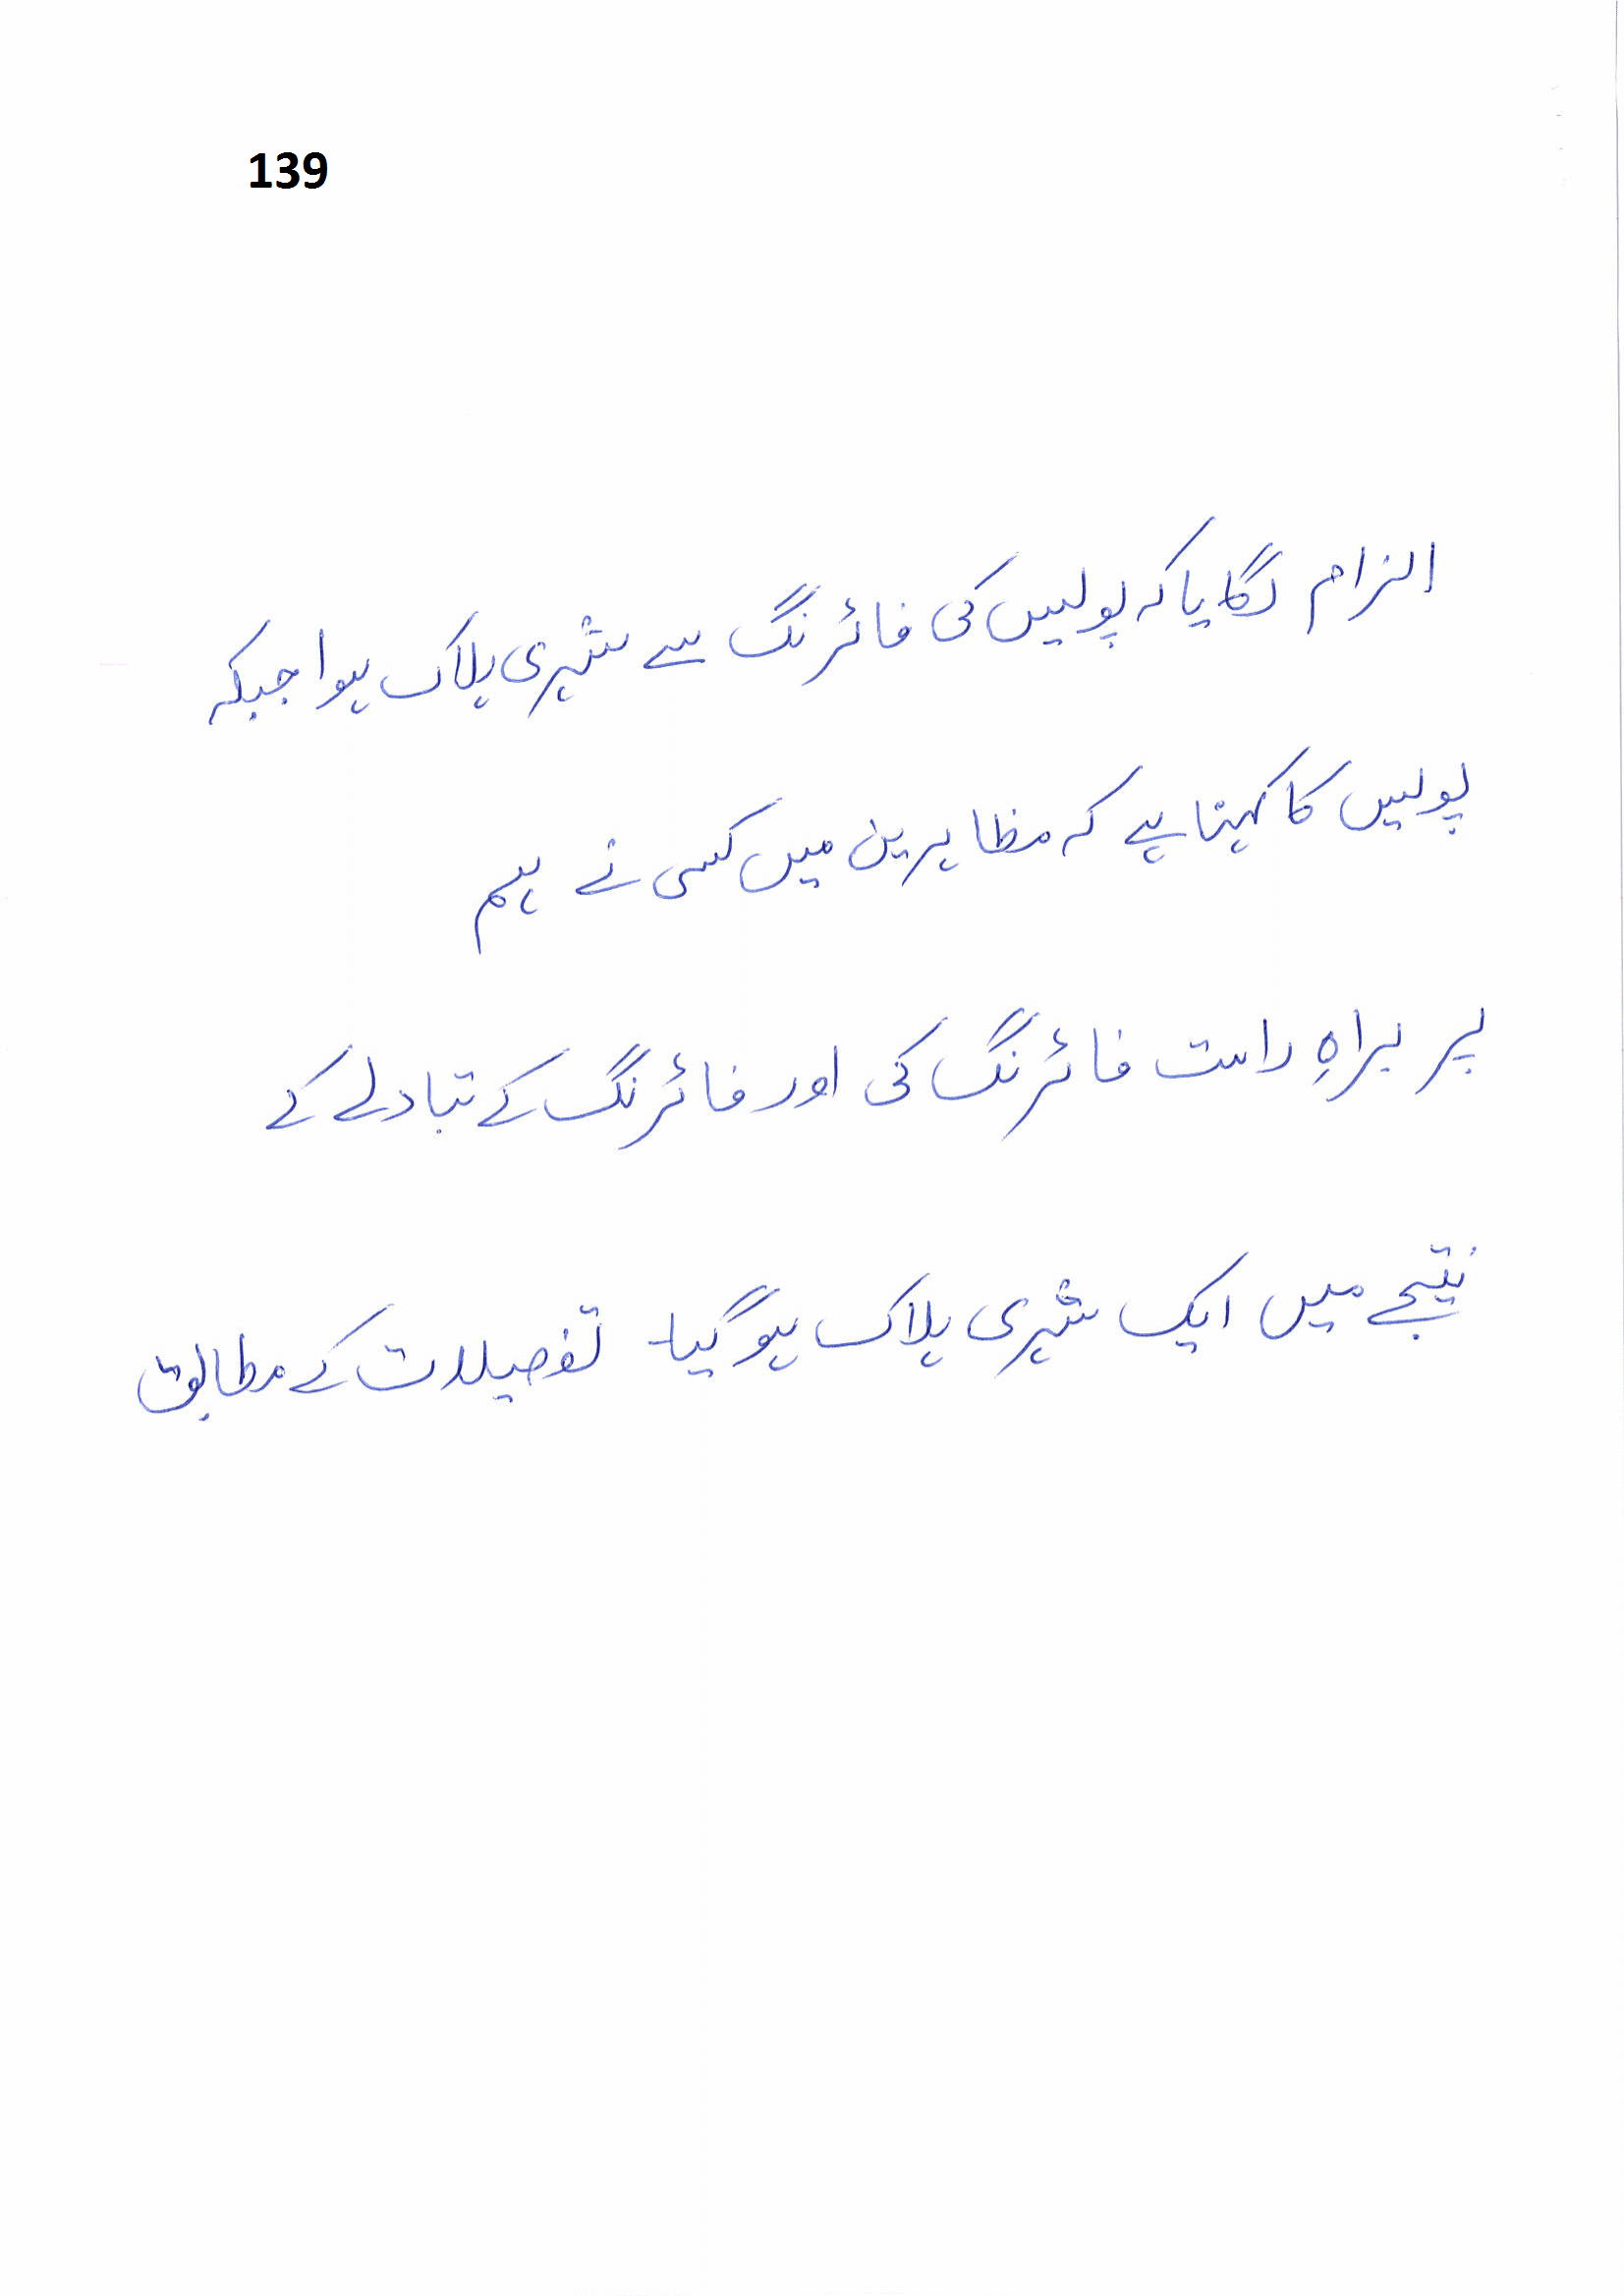 139
الزام لگایا کہ پولیس کی فائرنگ سے شہری ہلاک ہوا جبکہ
پولیس کا کہنا ہے کہ مظاہرین میں کسی نے ہم
پر براہِ راست فائرنگ کی اور فائرنگ کے تبادلے کے
نتیجے میں ایک شہری ہلاک ہو گیا۔ تفصیلات کے مطابق